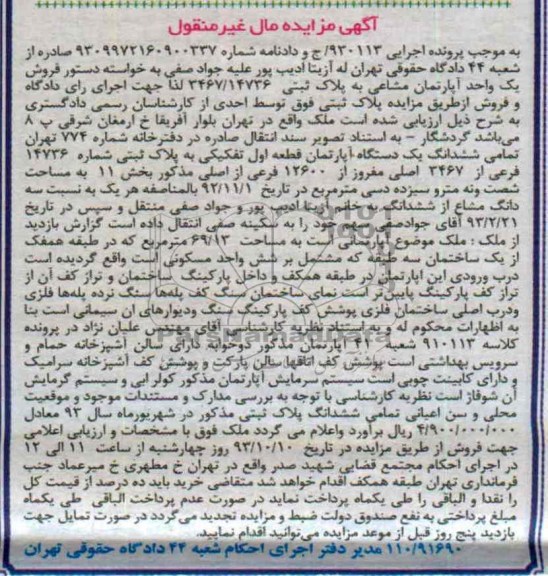 آگهی مزایده مال غیرمنقول
به موجب پرونده اجرایی ۹۳۰۱۱۳/ج و دادنامه شماره ۹۳۰۹۹۷۲۱۶۰۹۰۰۳۳۷ صادره از
شعبه ۴۴ دادگاه حقوقی تهران له آزیتا ادیب پور علیه جواد صفی به خواسته دستور فروش
یک واحد آپارتمان مشاعی به پلاک ثبتی ۳۴۶۷/۱۴۷۳۶ لذا جهت اجرای رای دادگاه
و فروش ازطریق مزایده پلاک ثبتی فوق توسط احدی از کارشناسان رسمی دادگستری
به شرح ذیل ارزیابی شده است ملک واقع در تهران بلوار آفریقا خ ارمغان شرقی پ ۸
می‌باشد گردشگار - به استناد تصویر سند انتقال صادره در دفترخانه شماره ۷۷۴ تهران
تمامی ششدانگ یک دستگاه آپارتمان قطعه اول تفکیکی به پلاک ثبتی شماره ۱۴۷۳۶
فرعی از ۳۴۶۷ اصلی مفروز از ۱۲۶۰۰ فرعی از اصلی مذکور بخش ۱۱ به مساحت
شصت ونه مترو سیزده دسی مترمربع در تاریخ ۹۲/۱۱/۱ بالمناصفه هر یک به نسبت سه
دانگ مشاع از ششدانگ به خانم آزیتا ادیب پور و جواد صفی منتقل و سپس در تاریخ
۹۳/۲/۲۱ آقای جوادصفی سهم خود را به سکینه صفی انتقال داده است گزارش بازدید
از ملک : ملک موضوع آپارتمانی است به مساحت ۶۹/۱۳ مترمربع که در طبقه همکف
از یک ساختمان سه طبقه که مشتمل بر شش واحد مسکونی است واقع گردیده است
درب ورودی این اپارتمان در طبقه همکف و داخل پارکینگ ساختمان و تراز کف آن از
تراز کف پارکینگ پایین‌تر است نمای ساختمان سنگ کف پله‌ها سنگ نرده پله‌ها فلزی
ودرب اصلی ساختمان فلزی پوشش کف پارکینگ سنگ ودیوارهای ان سیمانی است بنا
به اظهارات محکوم له و به استناد نظریه کارشناسی آقای مهندس علیان نژاد در پرونده
کلاسه ۹۱۰۱۱۳ شعبه ۴۴ آپارتمان مذکور دوخوابه دارای سالن آشپزخانه حمام و
سرویس بهداشتی است پوشش کف اتاقها سالن پارکت و پوشش کف آشپزخانه سرامیک
و دارای کابینت چوبی است سیستم سرمایش آپارتمان مذکور کولر ابی و سیستم گرمایش
آن شوفاژ است نظریه کارشناسی با توجه به بررسی مدارک و مستندات موجود و موقعیت
محلی و سن اعیانی تمامی ششدانگ پلاک ثبتی مذکور در شهریورماه سال ۹۳ معادل
۴/۹۰۰/۰۰۰/۰۰۰ ریال برآورد واعلام می گردد ملک فوق با مشخصات و ارزیابی اعلامی
جهت فروش از طریق مزایده در تاریخ ۹۳/۱۰/۱۰ روز چهارشنبه از ساعت ۱۱ الی ۱۲
در اجرای احکام مجتمع قضایی شهید صدر واقع در تهران خ مطهری خ میرعماد جنب
فرمانداری تهران طبقه همکف اقدام خواهد شد متقاضی خرید باید ده درصد از قیمت کل
را نقدا و الباقی را طی یکماه پرداخت نماید در صورت عدم پرداخت الباقی طی یکماه
مبلغ پرداختی به نفع صندوق دولت ضبط و مزایده تجدید می‌گردد در صورت تمایل جهت
بازدید پنج روز قبل از موعد مزایده می‌توانید اقدام نمایید.
۱۱۰/۹۱۶۹۰ مدیر دفتر اجرای احکام شعبه ۴۴ دادگاه حقوقی تهران